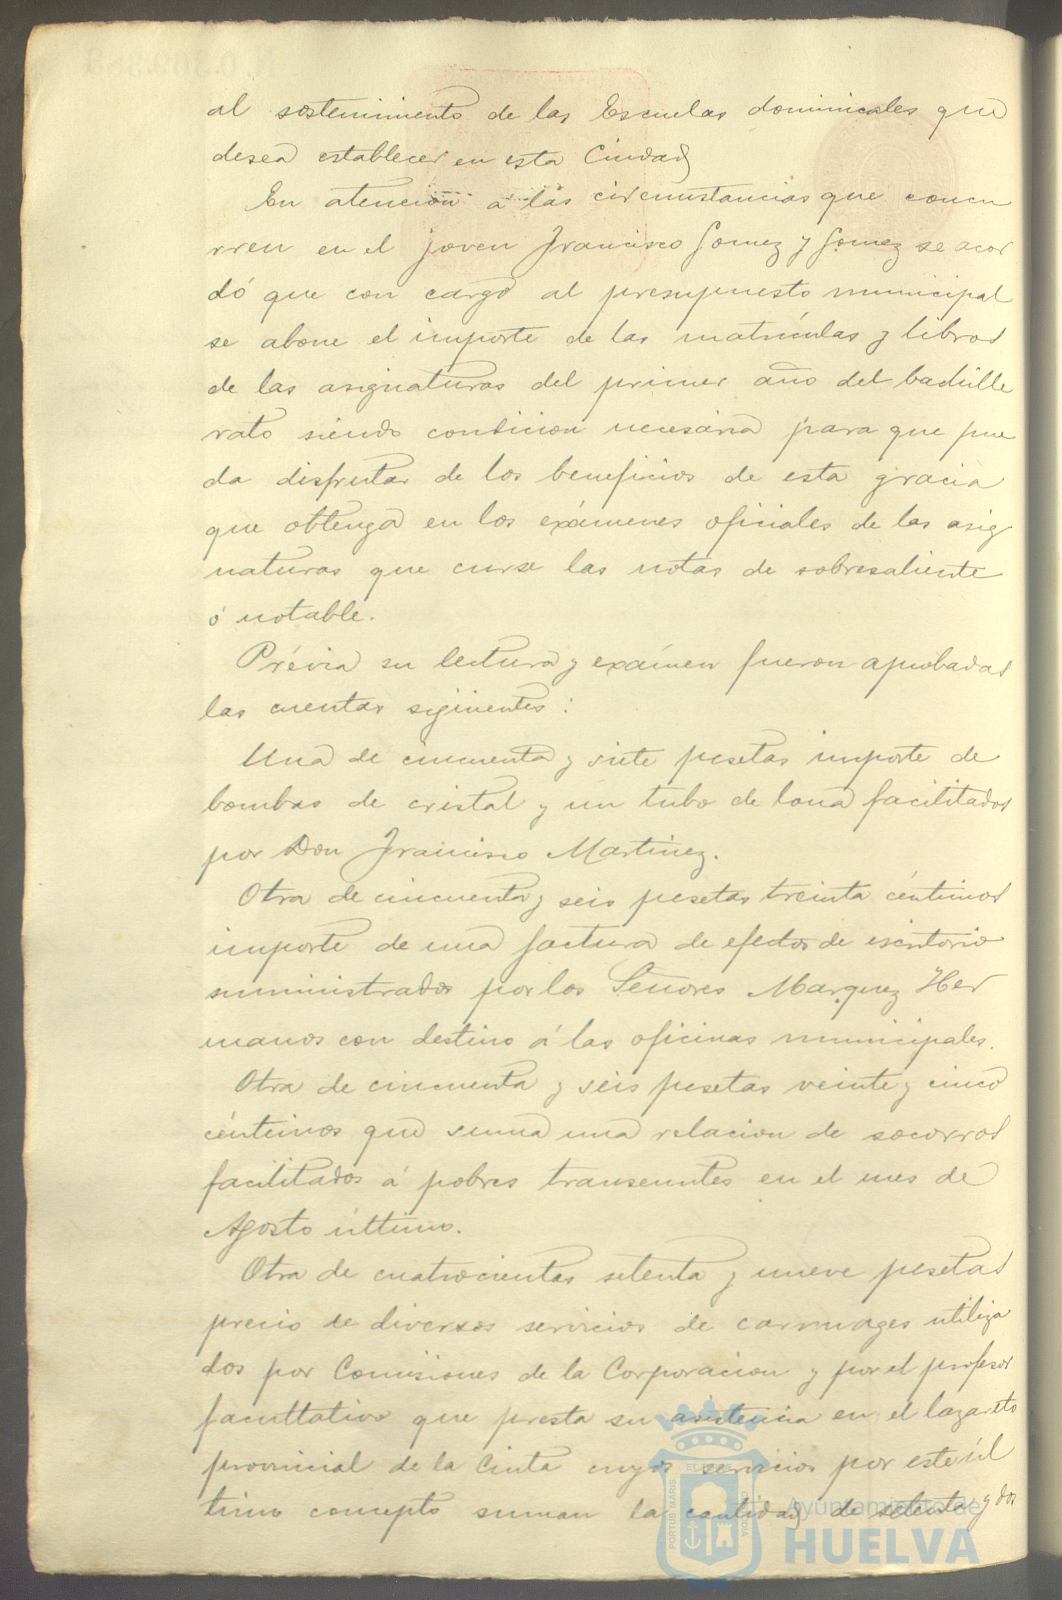 al sostenimiento de las Escuelas dominicales que
desea establecer en esta Ciudad
En atencion á las circunstancias que concu
rren en el joven Francisco Gomez y Gomez se acor
dó que con cargo al presupuesto municipal
se abone el importe de las matrículas y libros
de las asignaturas del primer año del bachille
rato siendo condicion necesaria para que pue
da disfrutar de los beneficios de esta gracia
que obtenga en los exámenes oficiales de las asig
naturas que curse las notas de sobresaliente
ó notable.
Prévia su lectura y exámen fueron aprobadas
las cuentas siguientes:
Una de cincuenta y siete pesetas importe de
bombas de cristal y un tubo de lona facilitados
por Don Francisco Martinez.
Otra de cincuenta y seis pesetas treinta céntimos
importe de una factura de efectos de escritorio
suministrados por los Señores Marquez Her
manos con destino á las oficinas municipales.
Otra de cincuenta y seis pesetas veinte y cinco
céntimos que suma una relacion de socorros
facilitados á pobres transeuntes en el mes de
Agosto último.
Otra de cuatrocientas setenta y nueve pesetas
precio de diversos servicios de carruages utiliza
dos por Comisiones de la Corporacion y por el profesor
facultativo que presta su asistencia en el lazareto
provincial de la Cinta cuyos servicios por este úl
timo concepto suman la cantidad de setenta y dos
Ayuntamiento de
HUELVA
PORTUS MARIS
ET TERRAE
CUSTODIA